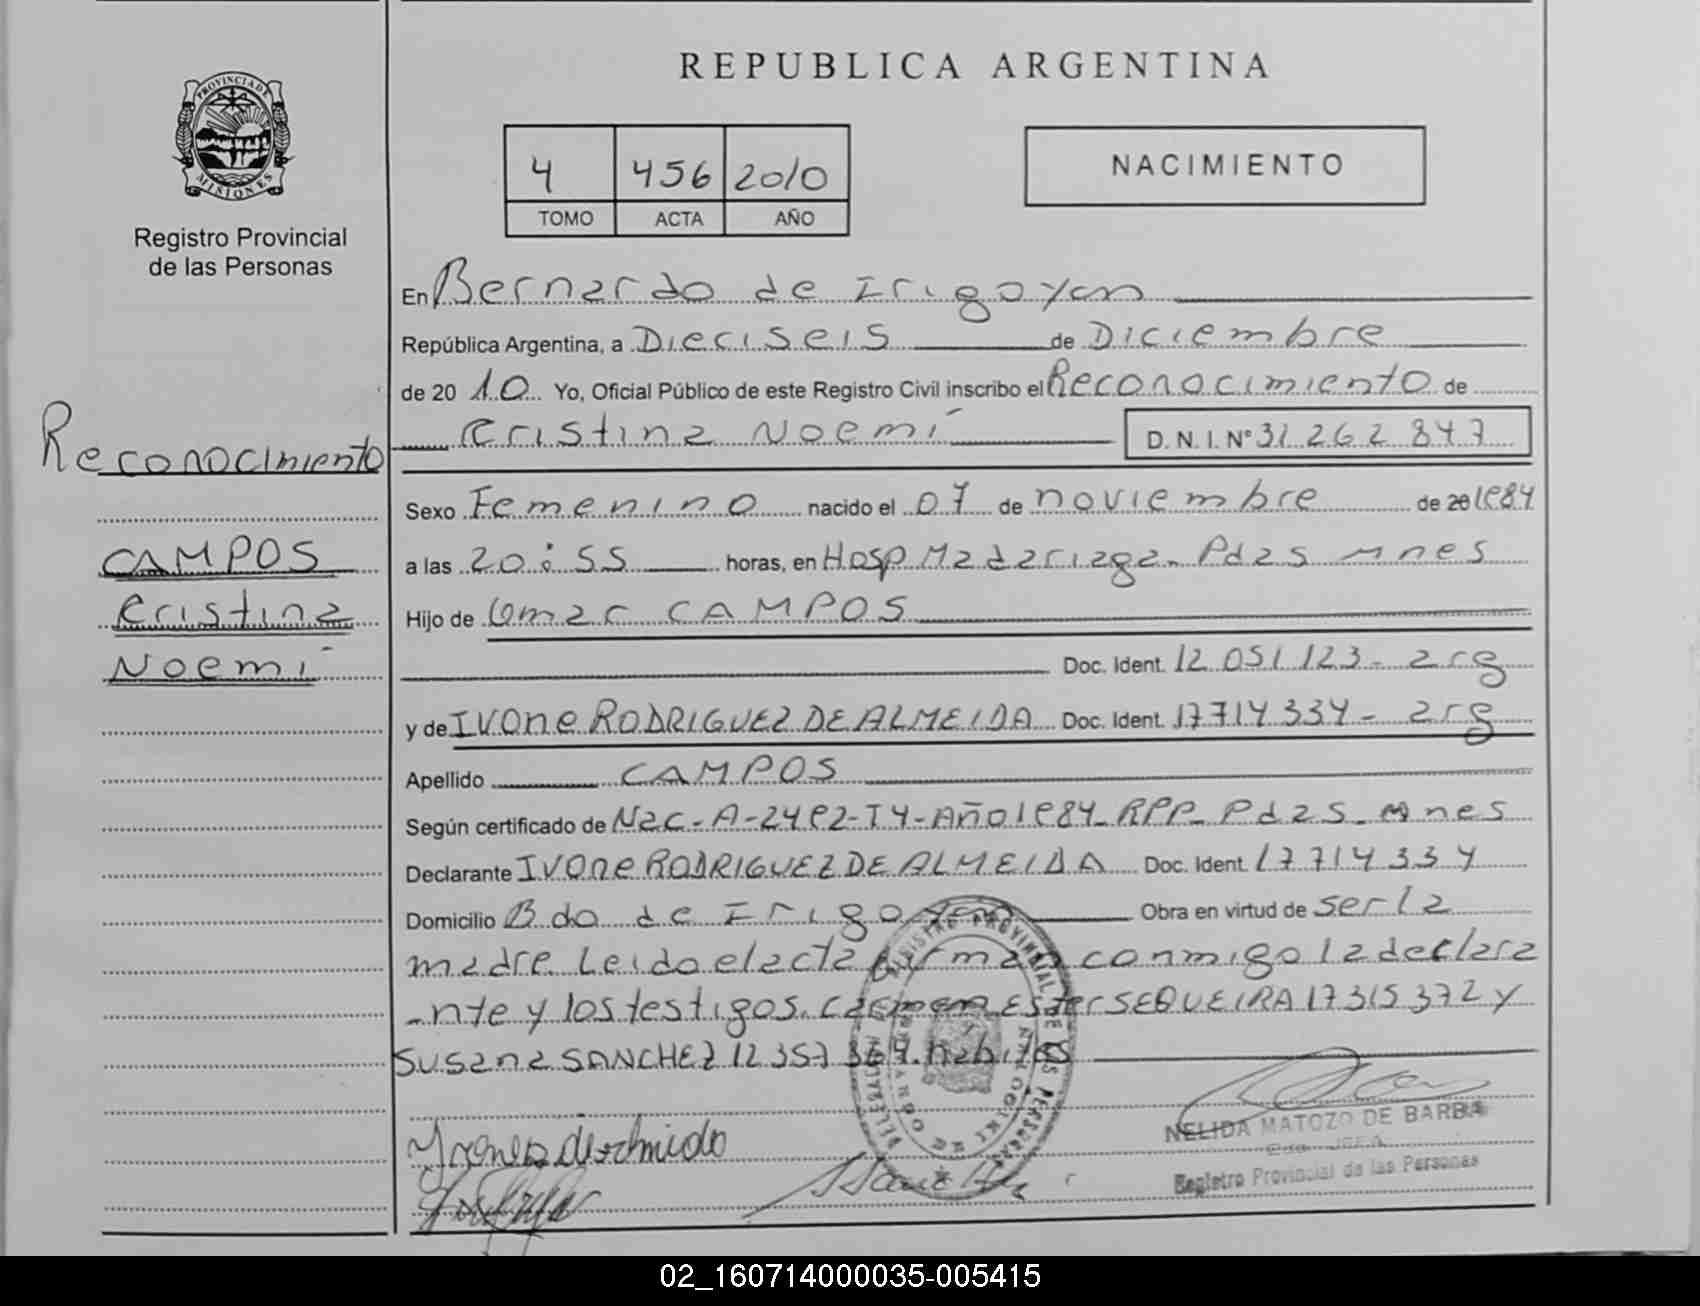 REPUBLICA ARGENTINA
PROVINCIA DE
MISIONES
Registro Provincial
de las Personas
4 456 2010
TOMO ACTA AÑO
NACIMIENTO
En Bernardo de Irigoyen
República Argentina, a Dieciseis de Diciembre
de 20 10 Yo, Oficial Público de este Registro Civil inscribo el Reconocimiento de
Cristina Noemí D.N.I. Nº 31 262 847
Reconocimiento
CAMPOS
Cristina
Noemí
Sexo Femenino nacido el 07 de noviembre de 20 1984
a las 20:55 horas, en Hosp Madariaga - Pdas mnes
Hijo de Omar CAMPOS
Doc. Ident. 12 051 123 - arg
y de IVONE RODRIGUEZ DE ALMEIDA Doc. Ident. 17714 334 - arg
Apellido CAMPOS
Según certificado de Nac-A-2492-T4-Año1984-RPP-Pdas-mnes
Declarante IVONE RODRIGUEZ DE ALMEIDA Doc. Ident. 17714334
Domicilio Bdo de Irigoyen Obra en virtud de ser la
madre. Leida el acta firman conmigo la declara
-nte y los testigos. Carmen Ester SEQUEIRA 17315372 y
Susana SANCHEZ 12357364. habiles
NELIDA MATOZO DE BARBA
Registro Provincial de las Personas
02_160714000035-005415